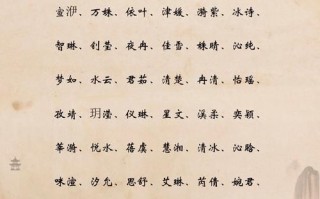 蜜洢、万姝、依叶、津媛、漪紫、冰诗、
智琳、钊莹、夜冉、佳蕾、姝晴、沁纯、
梦如、水云、君茹、清楚、冉清、怡瑶、
孜靖、玥滢、仪琳、星文、溪柔、奕颖、
筝漪、悦水、蒨虞、慧湘、清冰、沁晗、
咪渲、汐允、思舒、艾琳、芮倩、婉君、